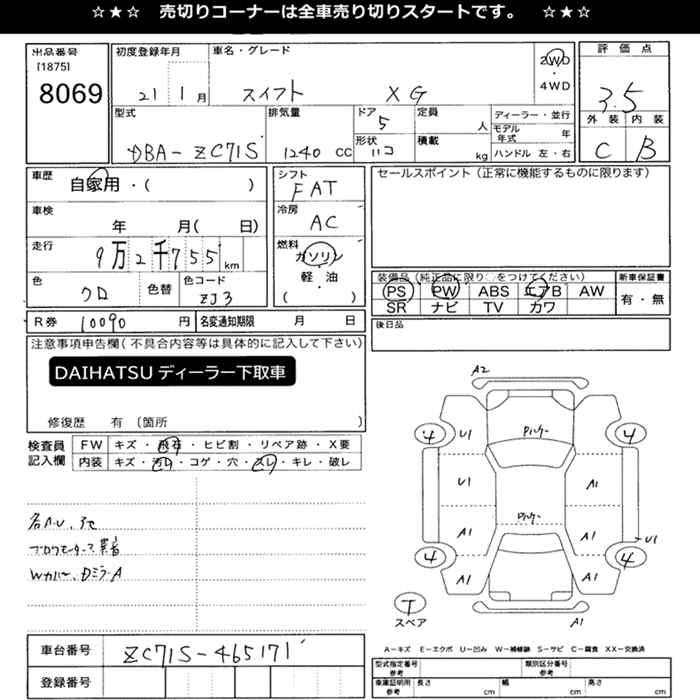 ☆★☆ 売切りコーナーは全車売り切りスタートです。 ☆★☆
出品番号
[1875]
8069
初度登録年月
21 1 月
車名・グレード
スイフト XG
2WD
・
4WD
評価点
3.5
外装 内装
C B
型式
DBA-ZC71S
排気量
1240 CC
ドア
5
形状
ハコ
定員
人
積載
kg
ディーラー・並行
モデル年式 年
ハンドル 左・右
車歴
自家用・( )
車検
年 月( 日)
走行
9万2千755 km
色
クロ
色替
色コード
ZJ3
シフト
FAT
冷房
AC
燃料
ガソリン
軽・油
( )
セールスポイント(正常に機能するものに限ります)
装備品(純正品に限り○をつけてください)
PS PW ABS エアB AW
SR ナビ TV カワ
新車保証書
有・無
R券 10090 円
名変通知期限 月 日
後日品
注意事項申告欄(不具合内容等は具体的に記入して下さい)
DAIHATSU ディーラー下取車
修復歴 有 〔箇所 〕
検査員
記入欄
FW キズ・飛石・ヒビ割・リペア跡・X要
内装 キズ・汚レ・コゲ・穴・スレ・キレ・破レ
ブロワモーター
Wカバー、DミラーA
A2
4 U1 4
U1 A1
A1 A1 U1
4 A1 A1 4
T
スペア
A1
A-キズ E-エクボ U-凹み W-補修跡 S-サビ C-腐食 XX-交換済
車台番号
ZC71S-465171
登録番号
型式指定番号
参考
類別区分番号
参考
車庫証明用
参考
長さ cm 幅 cm 高さ cm